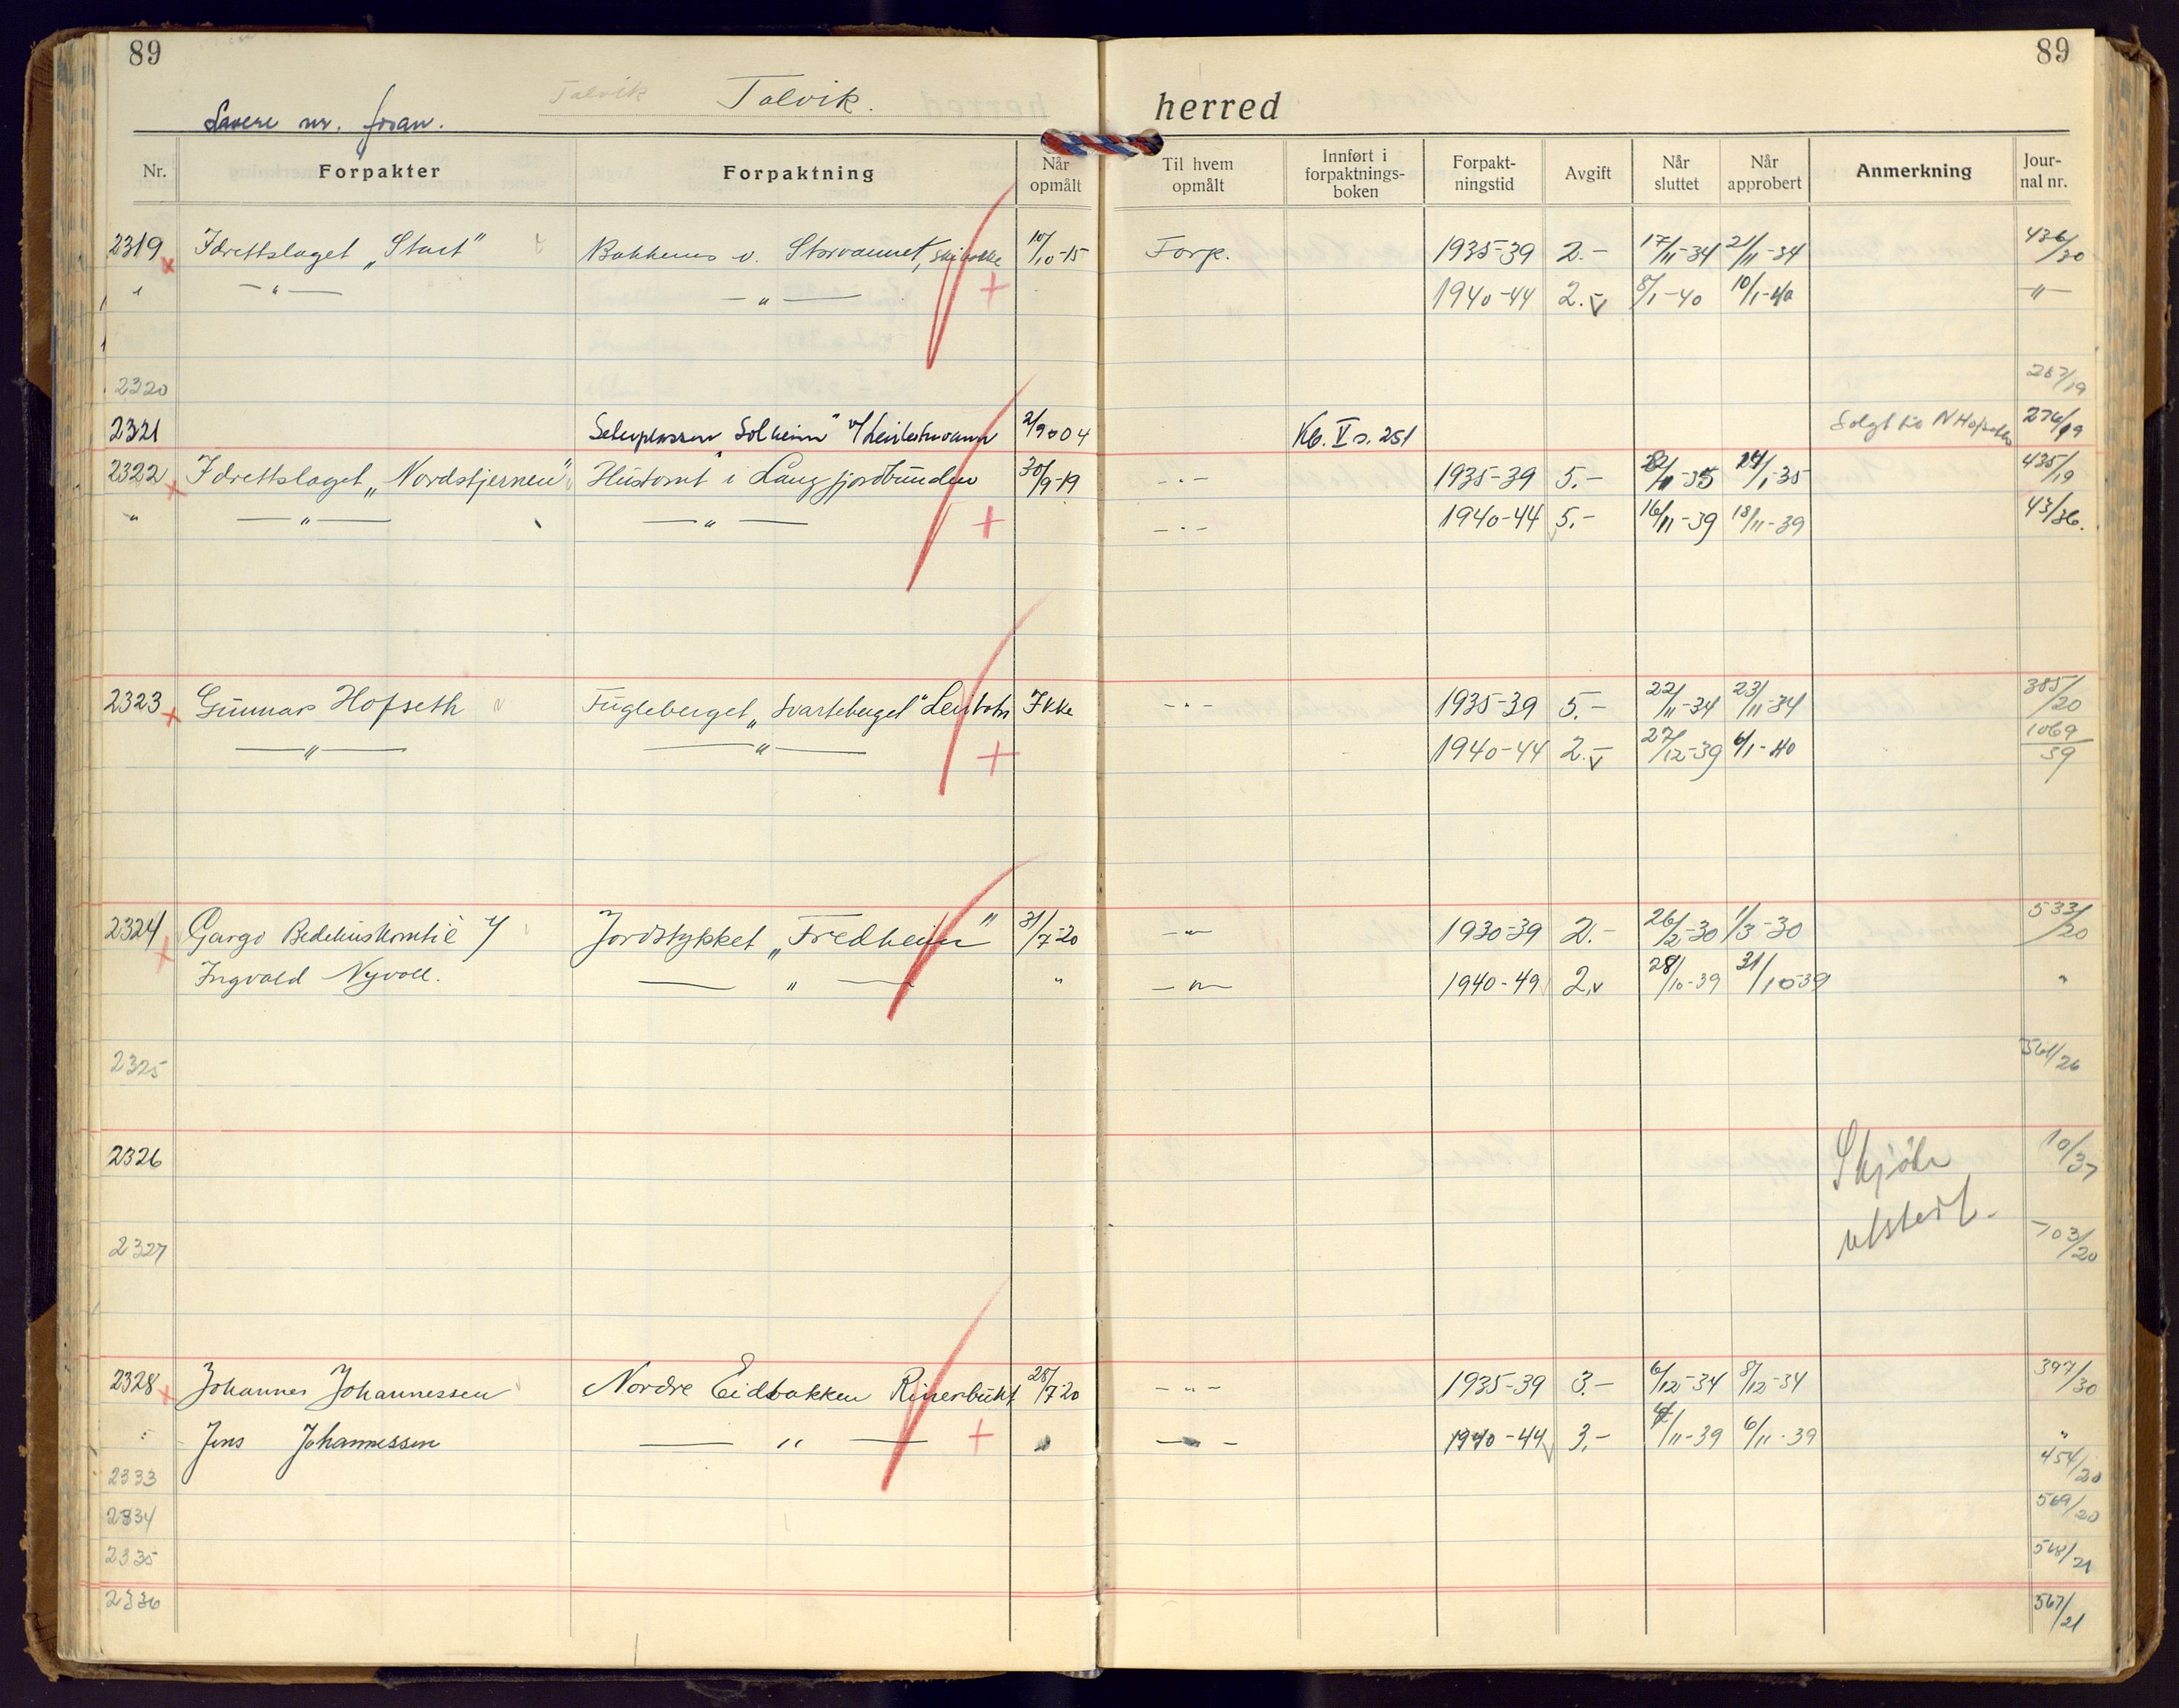 89 89
Talvik Talvik. herred
Lavere nr. foran.
Nr. Forpakter Forpaktning Når opmålt Til hvem opmålt Innført i forpaktnings-boken Forpakt-ningstid Avgift Når sluttet Når approbert Anmerkning Jour-nal nr.
2319 Idrettslaget „Start" Bakkenes v. Storvannet, skibakke 10/10-15 Forp. 1935-39 2.- 17/11-34 21/11-34 436/30
" —"— —"— 1940-44 2.- 8/1-40 10/1-40 —"—
2320 267/19
2321 Seterplassen Solheim" v/ Leirbotnvann 2/9-04 Kb. V s. 251 Solgt til N Hofseth 276/19
2322 Idrettslaget „Nordstjernen" Hustomt i Langfjordbunden 30/9-19 -"- 1935-39 5.- 22/11-35 24/1-35 435/19
" —"— —"— -"- 1940-44 5.- 16/11-39 18/11-39 43/36.
2323 Gunnar Hofseth Fugleberget „Svarteberget" Leirbotn Ikke -"- 1935-39 5.- 22/11-34 23/11-34 385/20
—"— —"— 1940-44 2.- 27/12-39 6/1-40 1069/39
2324 Gargo Bedehuskomité v/ Jordstykket „Fredheim" 31/7-20 -"- 1930-39 2.- 26/2-30 1/3-30 533/20
Ingvald Nyvoll. —"— " -"- 1940-49 2. 28/10-39 31/10-39 "
2325 561/26
2326 Skjøte 10/37
utstedt.
2327 703/20
2328 Johannes Johannessen Nordre Eidbakken Riverbukt 28/7-20 -"- 1935-39 3.- 6/12-34 8/12-34 397/30
" Jens Johannessen —"— " -"- 1940-44 3.- 4/11-39 6/11-39 "
2333 454/20
2334 569/20
2335 568/21
2336 567/21